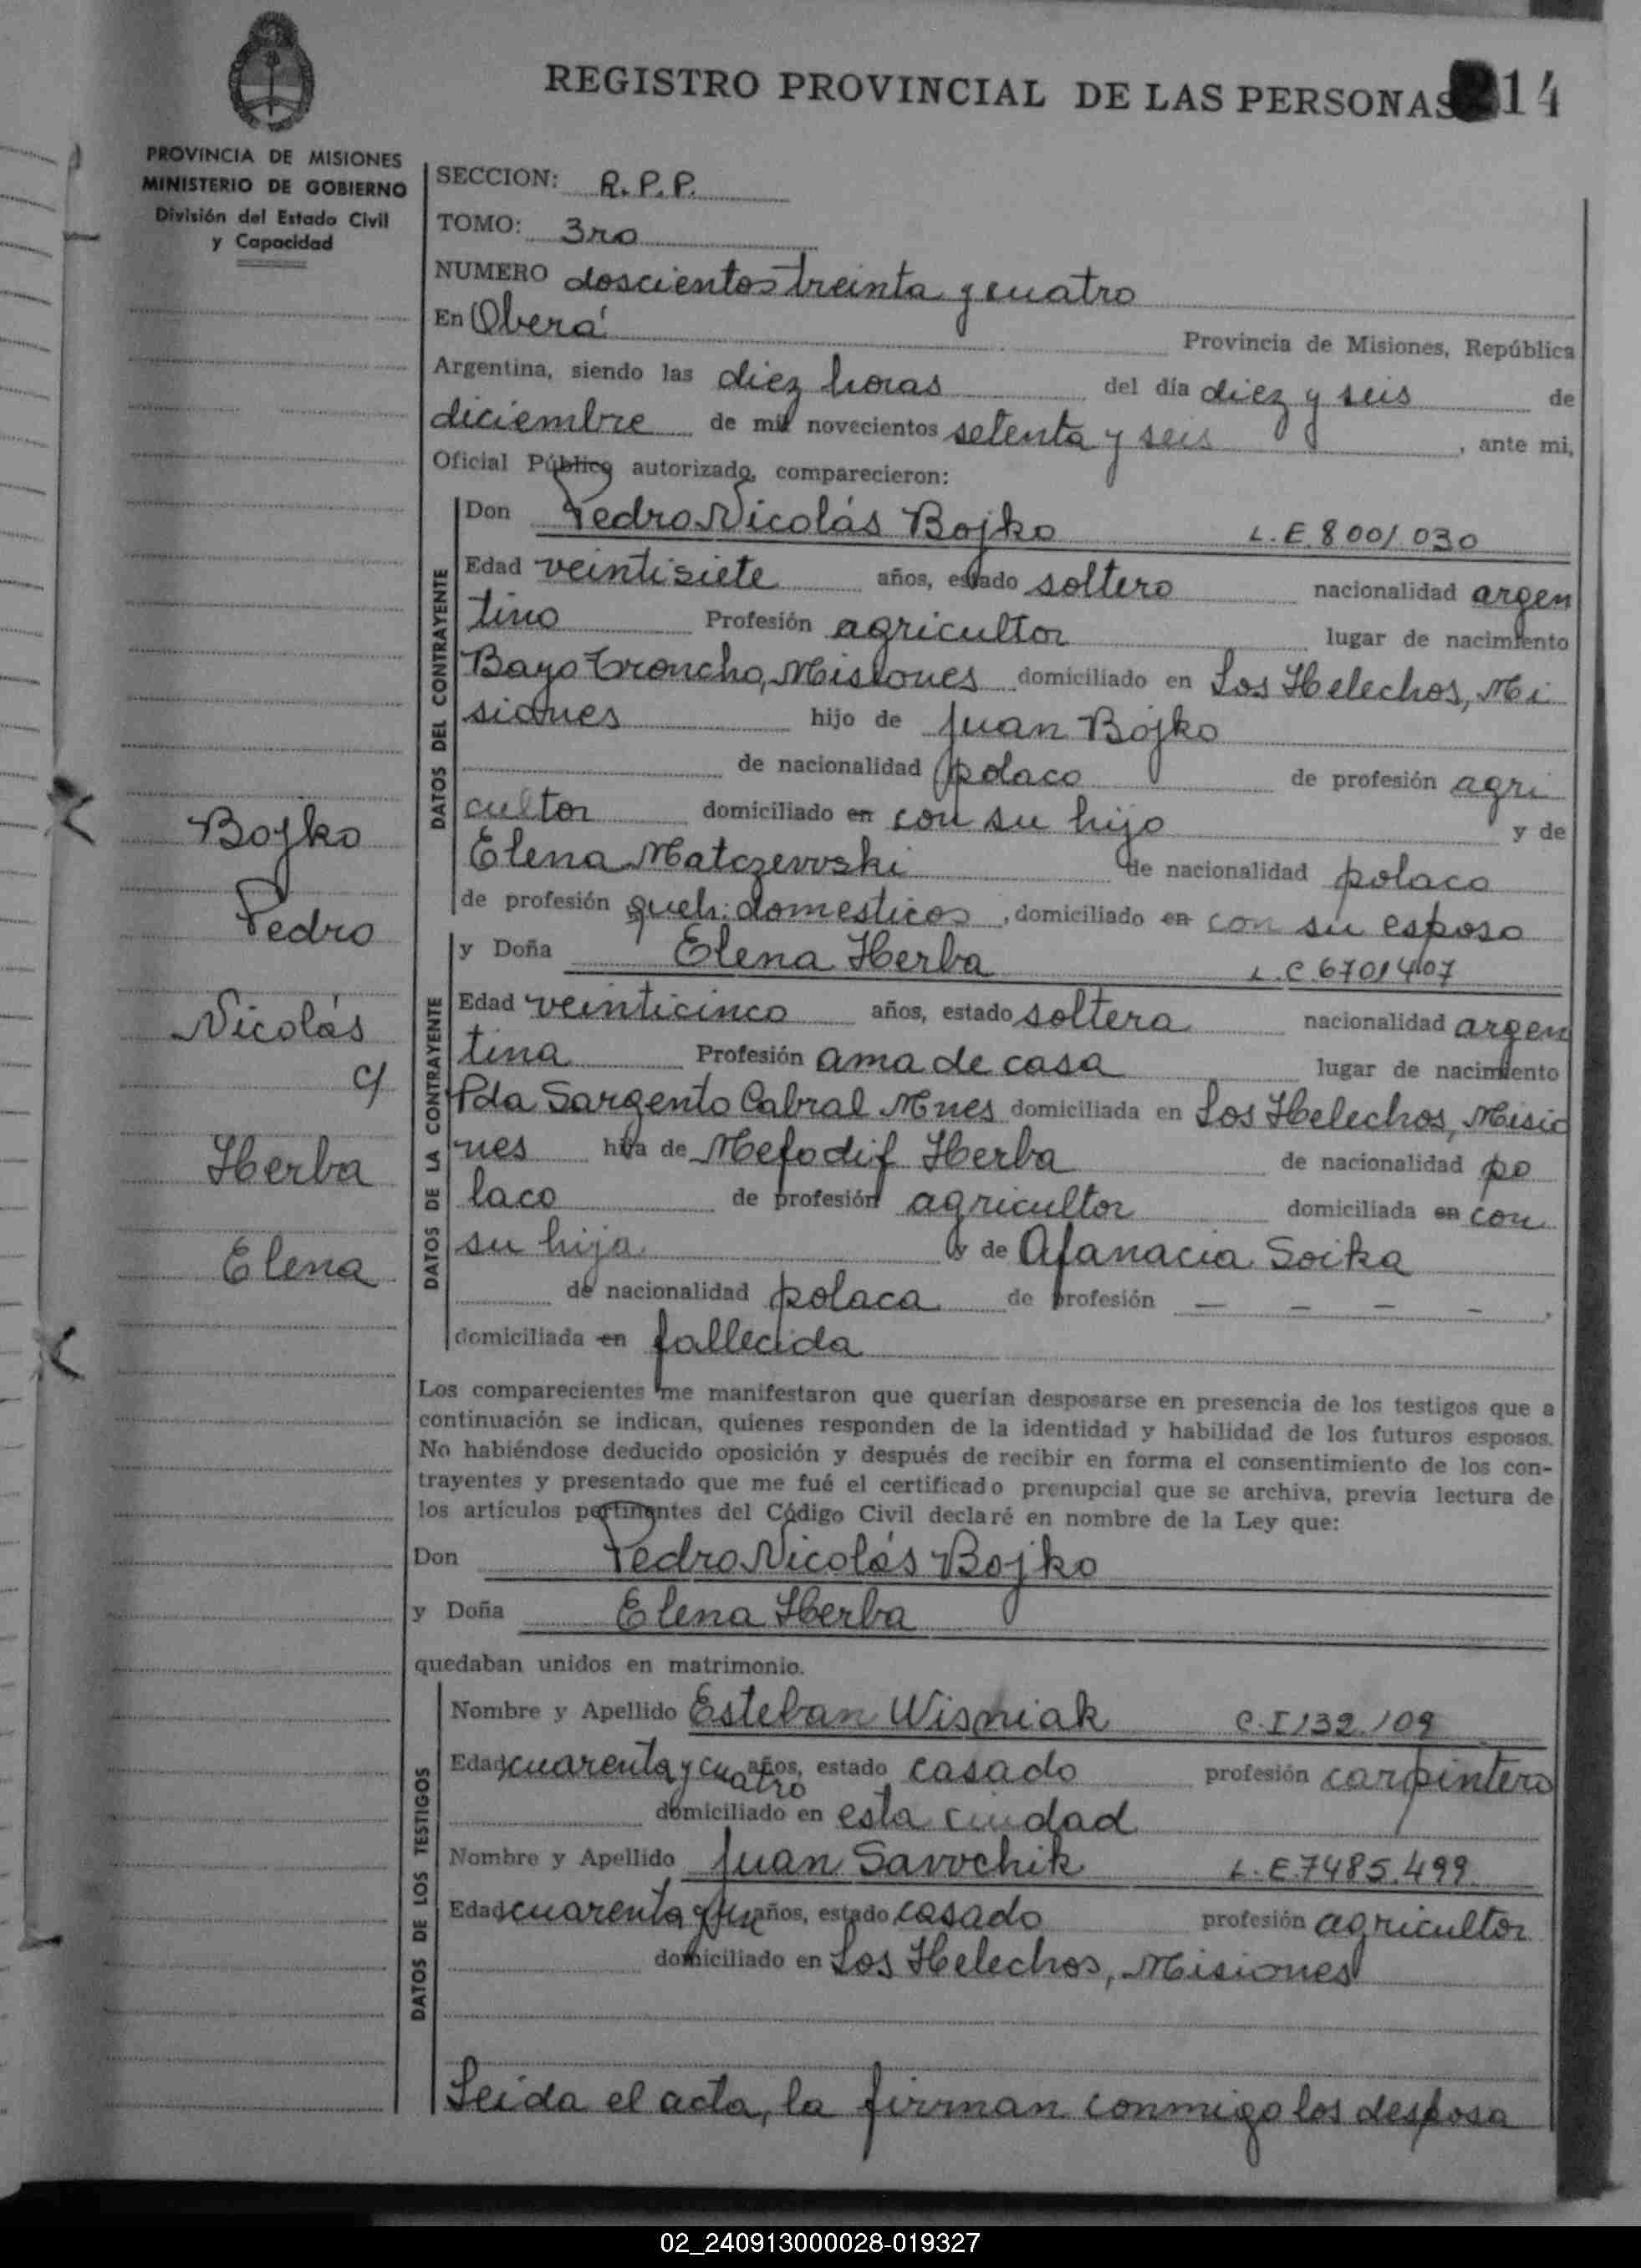 REGISTRO PROVINCIAL DE LAS PERSONAS 214
PROVINCIA DE MISIONES
MINISTERIO DE GOBIERNO
División del Estado Civil
y Capacidad
SECCION: R.P.P.
TOMO: 3ro
NUMERO doscientos treinta y cuatro
En Oberá Provincia de Misiones, República
Argentina, siendo las diez horas del día diez y seis de
diciembre de mil novecientos setenta y seis, ante mi,
Oficial Público autorizado, comparecieron:
DATOS DEL CONTRAYENTE
Don Pedro Nicolás Bojko L.E. 8001030
Edad veintisiete años, estado soltero nacionalidad argen
tino Profesión agricultor lugar de nacimiento
Bayo Troncho, Misiones domiciliado en Los Helechos, Mi
siones hijo de Juan Bojko
de nacionalidad polaco de profesión agri
cultor domiciliado en con su hijo y de
Elena Matczewski de nacionalidad polaca
de profesión queh: domesticos, domiciliado en con su esposo
DATOS DE LA CONTRAYENTE
y Doña Elena Herba L.C. 6701407
Edad veinticinco años, estado soltera nacionalidad argen
tina Profesión ama de casa lugar de nacimiento
Pda Sargento Cabral Mnes domiciliada en Los Helechos, Misio
nes hija de Mefodif Herba de nacionalidad po
laco de profesión agricultor domiciliada en con
su hija y de Afanacia Soika
de nacionalidad polaca de profesión — — — —,
domiciliada en fallecida
Bojko
Pedro
Nicolás
c/
Herba
Elena
Los comparecientes me manifestaron que querían desposarse en presencia de los testigos que a
continuación se indican, quienes responden de la identidad y habilidad de los futuros esposos.
No habiéndose deducido oposición y después de recibir en forma el consentimiento de los con-
trayentes y presentado que me fué el certificado prenupcial que se archiva, previa lectura de
los artículos pertinentes del Código Civil declaré en nombre de la Ley que:
Don Pedro Nicolás Bojko
y Doña Elena Herba
quedaban unidos en matrimonio.
DATOS DE LOS TESTIGOS
Nombre y Apellido Esteban Wisniak C.I 132.109
Edad cuarenta y cuatro años, estado casado profesión carpintero
domiciliado en esta ciudad
Nombre y Apellido Juan Savochik L.E. 7485.499
Edad cuarenta y un años, estado casado profesión agricultor
domiciliado en Los Helechos, Misiones
Leida el acta, la firman conmigo los desposa
02_240913000028-019327